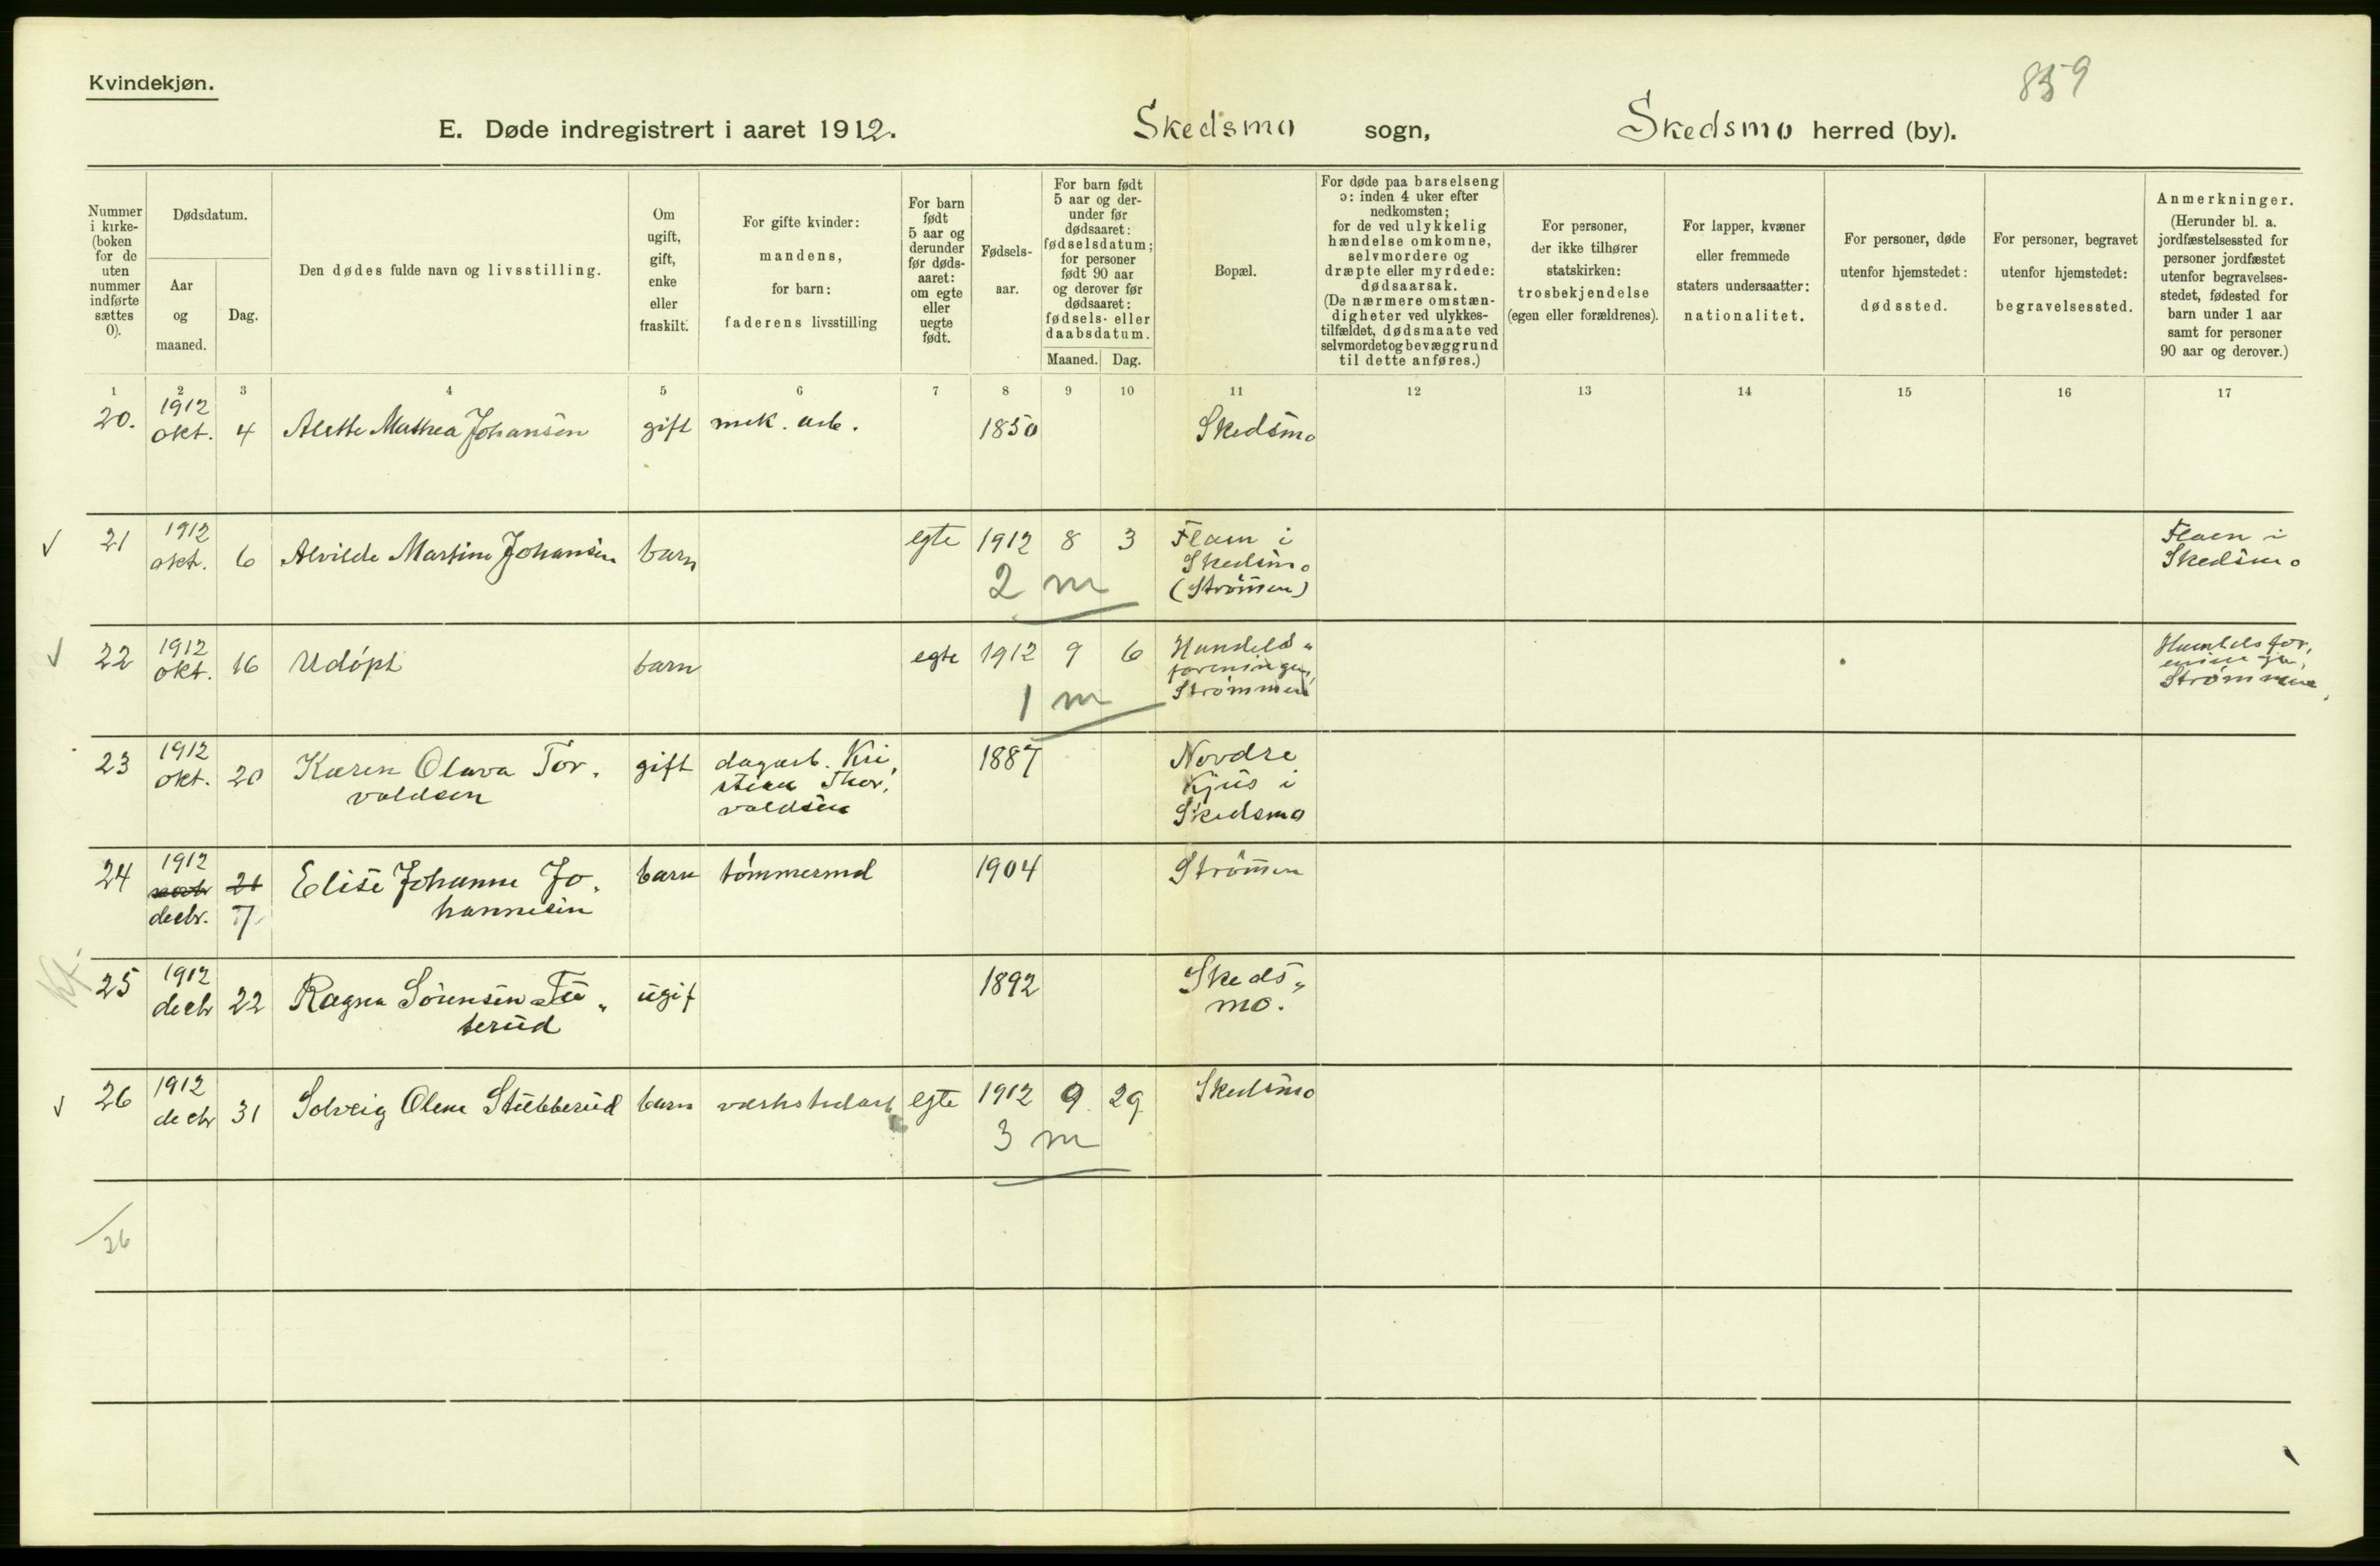 Kvindekjøn.
859
E. Døde indregistrert i aaret 1912. Skedsmo sogn, Skedsmo herred (by).
Nummer i kirke- (boken for de uten nummer indførte sættes 0).
Dødsdatum.
Aar og maaned.
Dag.
Den dødes fulde navn og livsstilling.
Om ugift, gift, enke eller fraskilt.
For gifte kvinder: mandens, for barn: faderens livsstilling
For barn født 5 aar og derunder før døds- aaret: om egte eller uegte født.
Fødsels- aar.
For barn født 5 aar og der- under før dødsaaret: fødselsdatum; for personer født 90 aar og derover før dødsaaret: fødsels- eller daabsdatum.
Maaned. Dag.
Bopæl.
For døde paa barselseng ɔ: inden 4 uker efter nedkomsten; for de ved ulykkelig hændelse omkomne, selvmordere og dræpte eller myrdede: dødsaarsak. (De nærmere omstæn- digheter ved ulykkes- tilfældet, dødsmaate ved selvmordet og bevæggrund til dette anføres.)
For personer, der ikke tilhører statskirken: trosbekjendelse (egen eller forældrenes).
For lapper, kvæner eller fremmede staters undersaatter: nationalitet.
For personer, døde utenfor hjemstedet: dødssted.
For personer, begravet utenfor hjemstedet: begravelsessted.
Anmerkninger. (Herunder bl. a. jordfæstelsessted for personer jordfæstet utenfor begravelses- stedet, fødested for barn under 1 aar samt for personer 90 aar og derover.)
1 2 3 4 5 6 7 8 9 10 11 12 13 14 15 16 17
20. 1912 okt. 4 Alette Mathea Johansen gift mek. arb. 1850 Skedsmo
21 1912 okt. 6 Alvilde Martine Johansen barn egte 1912 8 3 Flaen i Skedsmo (Strømmen) Flaen i Skedsmo
2 m
22 1912 okt. 16 Udøpt barn egte 1912 9 6 Handels- foreningen, Strømmen Handelsfor, eningen, Strømmen
1 m
23 1912 okt. 20 Karen Olava Tor, valdsen gift dagarb. Kri, stian Thor, valdsen 1887 Nordre Kjus i Skedsmo
24 1912 decbr. 21 7 Elise Johanne Jo, hannesen barn tømmermd 1904 Strømmen
25 1912 decbr 22 Ragna Sørensen Tu„ terud ugif 1892 Skeds„ mo.
26 1912 decbr 31 Solveig Olene Stubberud barn verkstedarb egte 1912 9 29 Skedsmo
3 m
26